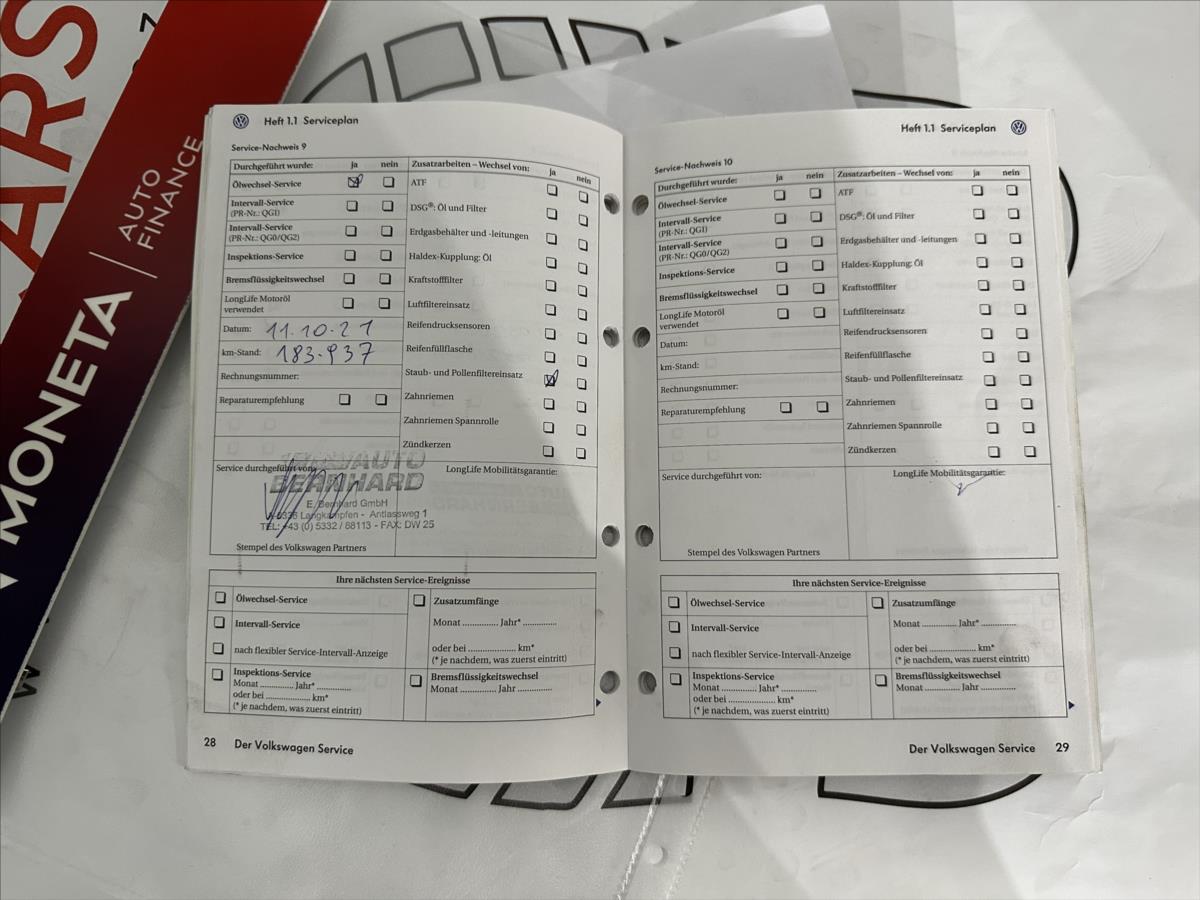 ARS
MONETA
AUTO
FINANCE
Heft 1.1 Serviceplan
Service-Nachweis 9
Durchgeführt wurde: ja nein
Ölwechsel-Service
Intervall-Service
(PR-Nr.: QG1)
Intervall-Service
(PR-Nr.: QG0/QG2)
Inspektions-Service
Bremsflüssigkeitswechsel
LongLife Motoröl
verwendet
Datum: 11.10.21
km-Stand: 183.937
Rechnungsnummer:
Reparaturempfehlung
Zusatzarbeiten – Wechsel von: ja nein
ATF
DSG®: Öl und Filter
Erdgasbehälter und -leitungen
Haldex-Kupplung: Öl
Kraftstofffilter
Luftfiltereinsatz
Reifendrucksensoren
Reifenfüllflasche
Staub- und Pollenfiltereinsatz
Zahnriemen
Zahnriemen Spannrolle
Zündkerzen
Service durchgeführt von:
BERNHARD
E. Bernhard GmbH
Langkampfen - Antlassweg 1
TEL: +43 (0) 5332 / 88113 - FAX: DW 25
Stempel des Volkswagen Partners
LongLife Mobilitätsgarantie:
Ihre nächsten Service-Ereignisse
Ölwechsel-Service
Intervall-Service
nach flexibler Service-Intervall-Anzeige
Inspektions-Service
Monat ............ Jahr* ............
oder bei .................... km*
(* je nachdem, was zuerst eintritt)
Zusatzumfänge
Monat ............ Jahr* ............
oder bei .................... km*
(* je nachdem, was zuerst eintritt)
Bremsflüssigkeitswechsel
Monat ............ Jahr ............
28 Der Volkswagen Service
Heft 1.1 Serviceplan
Service-Nachweis 10
Durchgeführt wurde: ja nein
Ölwechsel-Service
Intervall-Service
(PR-Nr.: QG1)
Intervall-Service
(PR-Nr.: QG0/QG2)
Inspektions-Service
Bremsflüssigkeitswechsel
LongLife Motoröl
verwendet
Datum:
km-Stand:
Rechnungsnummer:
Reparaturempfehlung
Zusatzarbeiten – Wechsel von: ja nein
ATF
DSG®: Öl und Filter
Erdgasbehälter und -leitungen
Haldex-Kupplung: Öl
Kraftstofffilter
Luftfiltereinsatz
Reifendrucksensoren
Reifenfüllflasche
Staub- und Pollenfiltereinsatz
Zahnriemen
Zahnriemen Spannrolle
Zündkerzen
Service durchgeführt von:
Stempel des Volkswagen Partners
LongLife Mobilitätsgarantie:
Ihre nächsten Service-Ereignisse
Ölwechsel-Service
Intervall-Service
nach flexibler Service-Intervall-Anzeige
Inspektions-Service
Monat ............ Jahr* ............
oder bei .................... km*
(* je nachdem, was zuerst eintritt)
Zusatzumfänge
Monat ............ Jahr* ............
oder bei .................... km*
(* je nachdem, was zuerst eintritt)
Bremsflüssigkeitswechsel
Monat ............ Jahr ............
Der Volkswagen Service 29